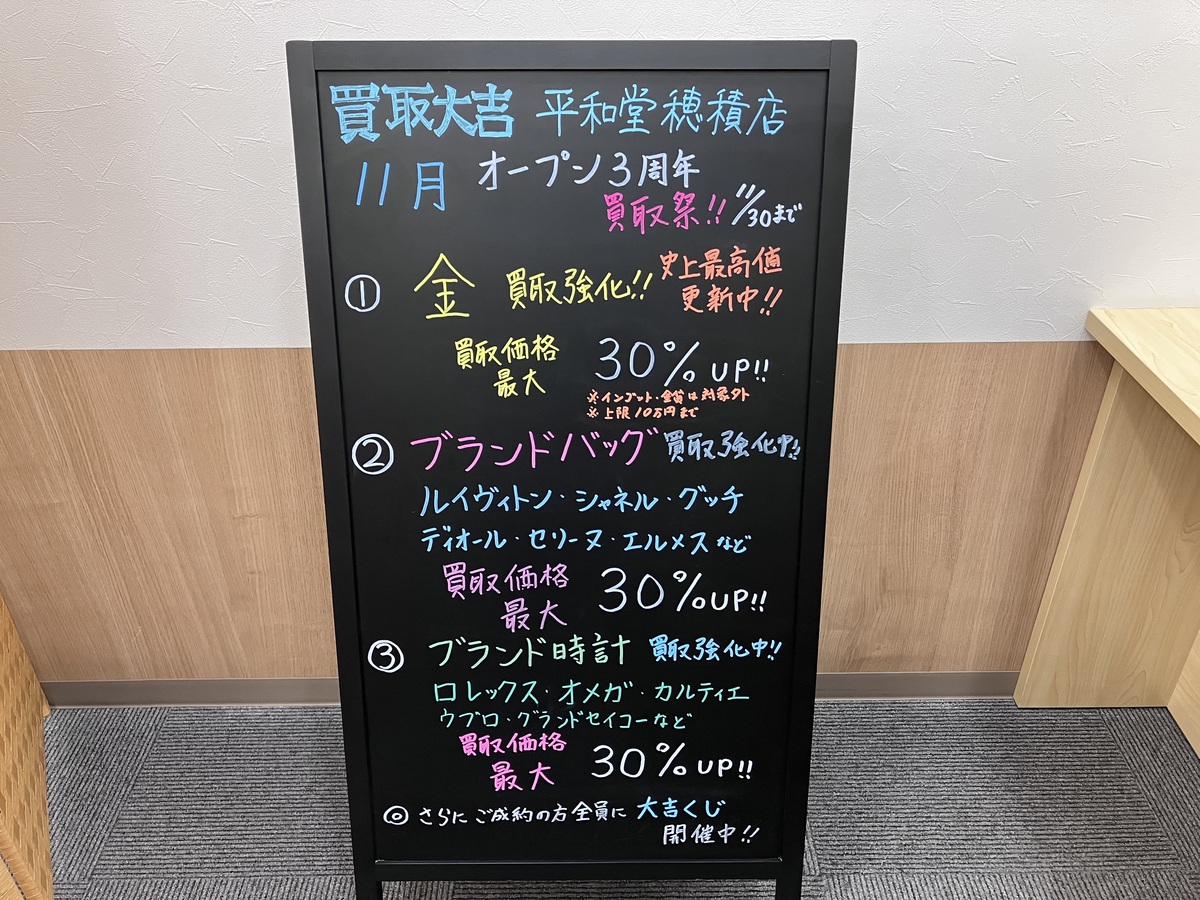 買取大吉 平和堂穂積店
11月 オープン3周年
買取祭!! 11/30まで
① 金 買取強化!! 史上最高値
更新中!!
買取価格
最大 30%UP!!
※インゴット・金貨は対象外
※上限10万円まで
② ブランドバッグ 買取強化中!!
ルイヴィトン・シャネル・グッチ
ディオール・セリーヌ・エルメスなど
買取価格
最大 30%UP!!
③ ブランド時計 買取強化中!!
ロレックス・オメガ・カルティエ
ウブロ・グランドセイコーなど
買取価格
最大 30%UP!!
◎ さらにご成約の方全員に 大吉くじ
開催中!!